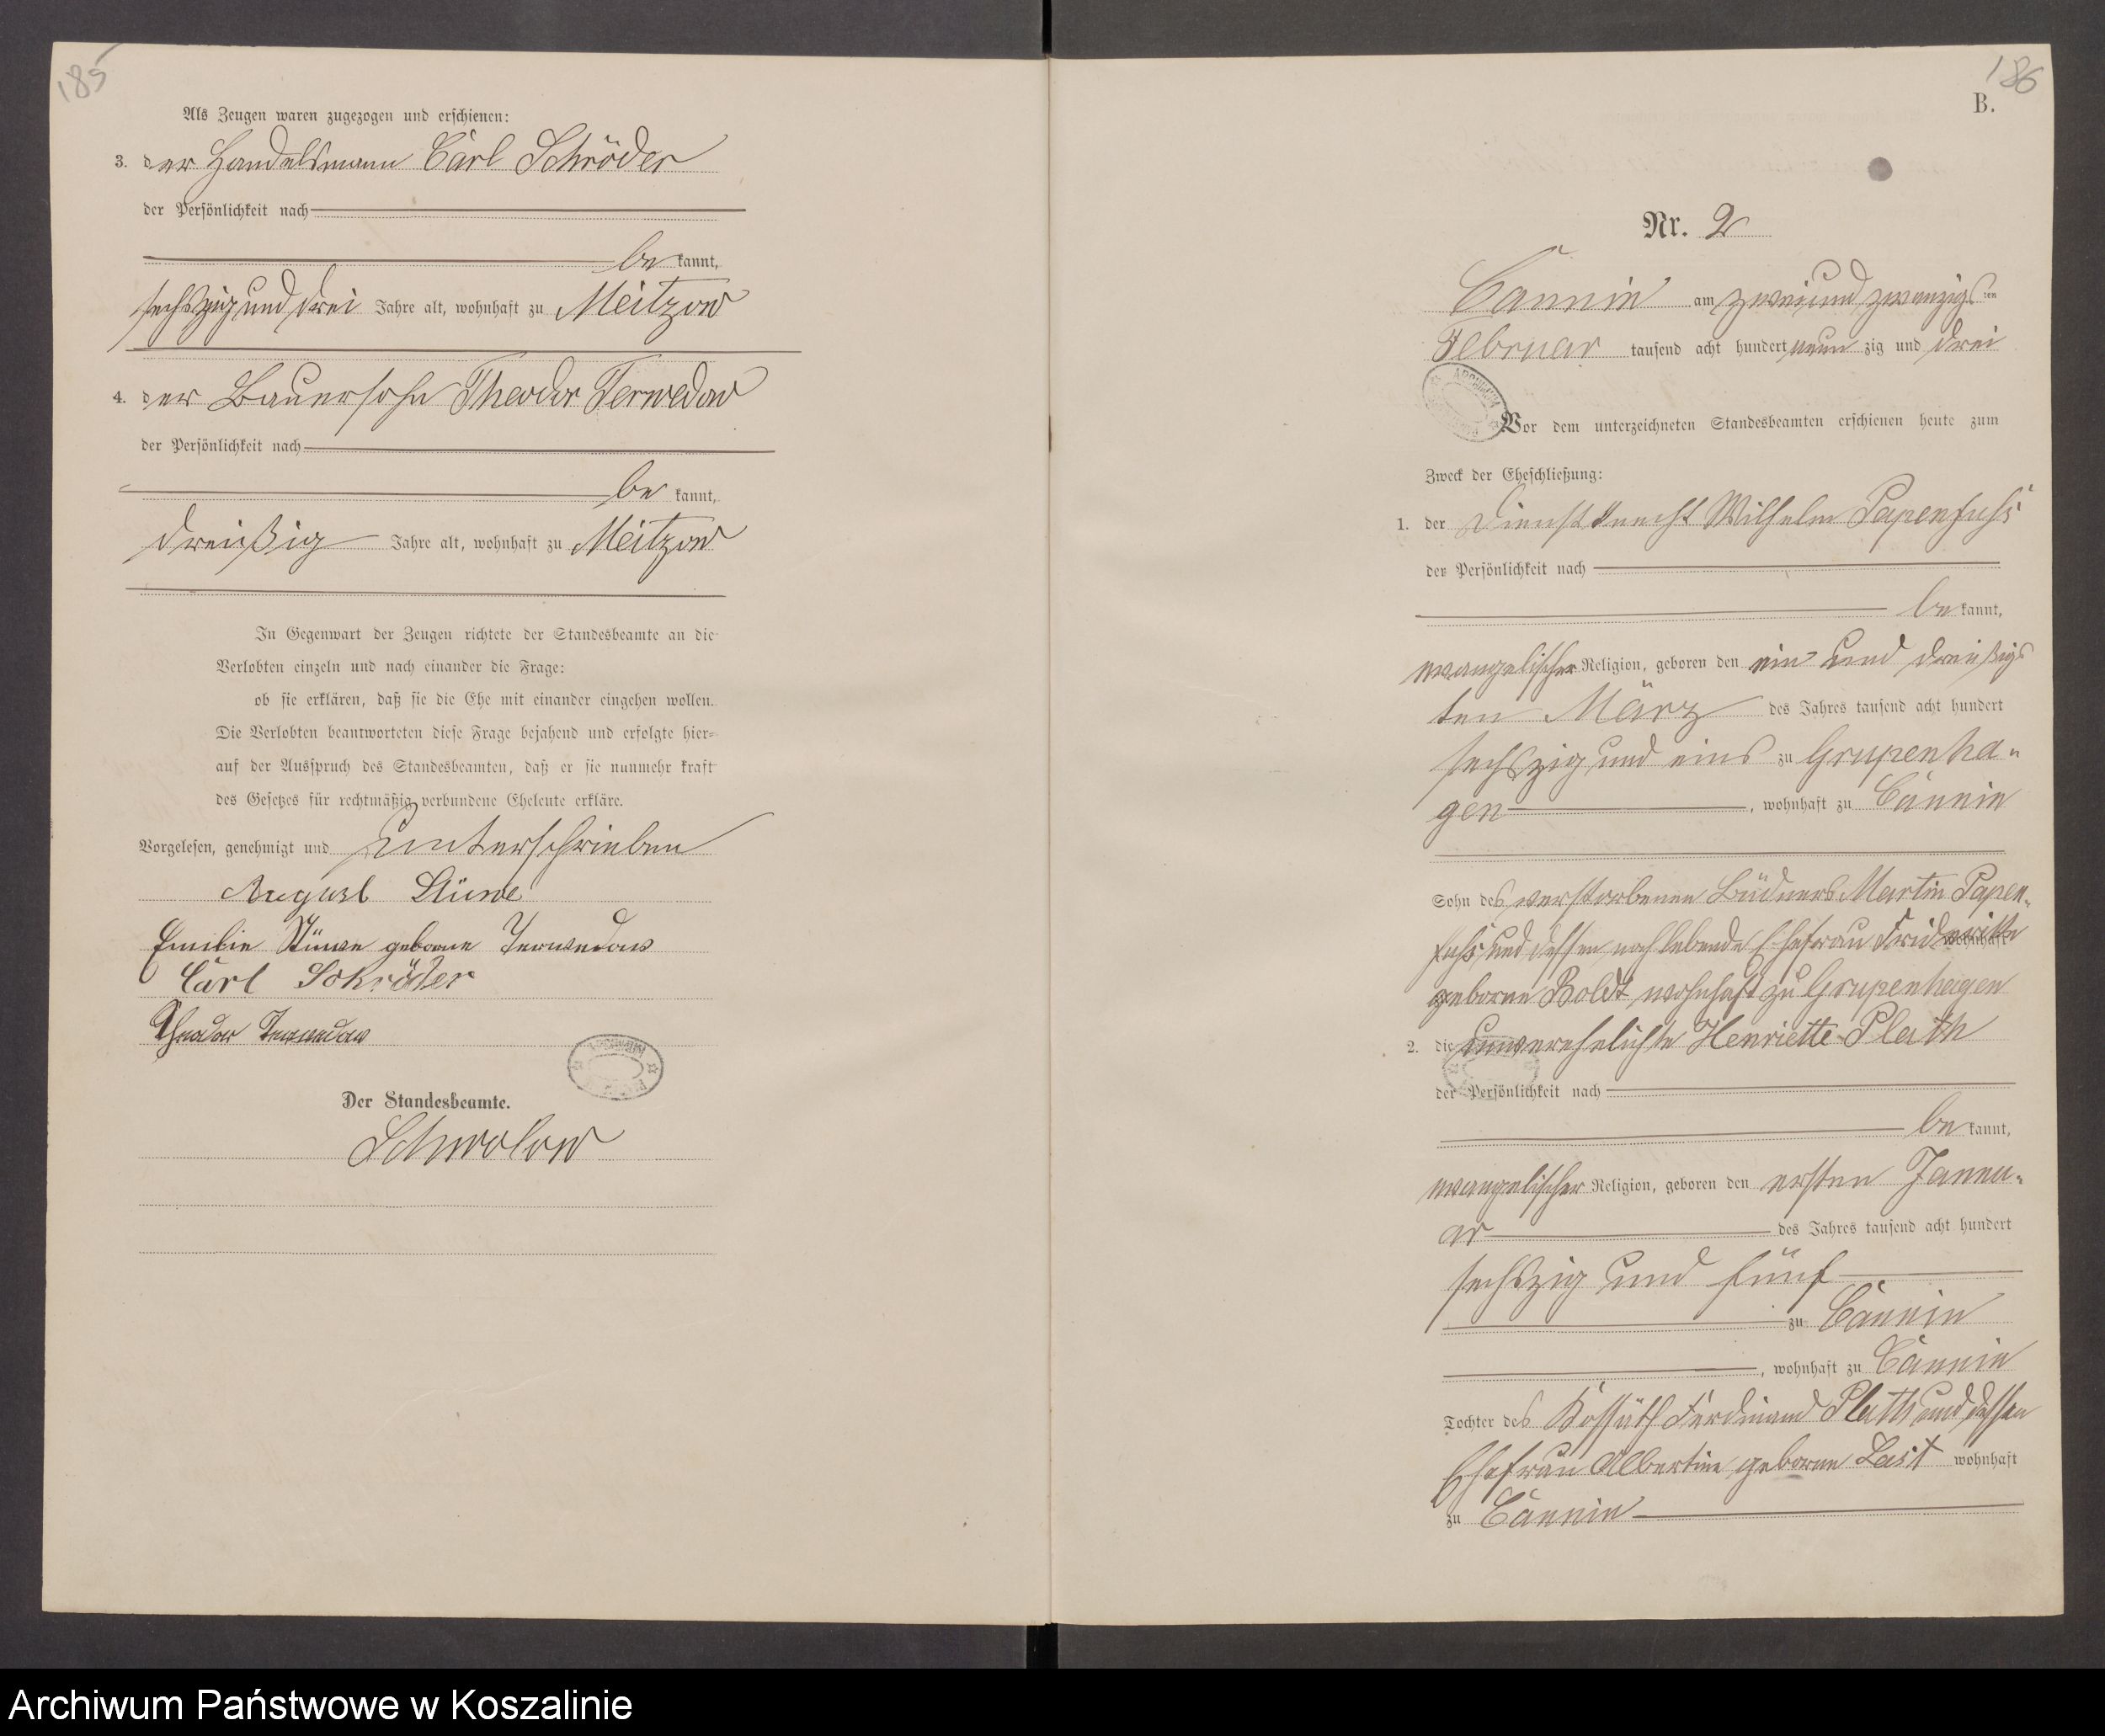 185
Als Zeugen waren zugezogen und erschienen:
3. der Handelsmann Carl Schröder
der Persönlichkeit nach
be kannt,
sechszig und drei Jahre alt, wohnhaft zu Meitzow
4. der Bauersohn Theodor Terwedow
der Persönlichkeit nach
be kannt,
dreißig Jahre alt, wohnhaft zu Meitzow
In Gegenwart der Zeugen richtete der Standesbeamte an die
Verlobten einzeln und nach einander die Frage:
ob sie erklären, daß sie die Ehe mit einander eingehen wollen.
Die Verlobten beantworteten diese Frage bejahend und erfolgte hier-
auf der Ausspruch des Standesbeamten, daß er sie nunmehr kraft
des Gesetzes für rechtmäßig verbundene Eheleute erkläre.
Vorgelesen, genehmigt und unterschrieben
August Stüwe
Emilie Stüwe geborne Terwedow
Carl Schröder
Theodor Terwedow
ARCHIWUM
Der Standesbeamte.
Schwolow
186
B.
Nr. 2
Cannin am zwei und zwanzigs ten
Februar tausend acht hundert neun zig und drei
ARCHIWUM
Vor dem unterzeichneten Standesbeamten erschienen heute zum
Zweck der Eheschließung:
1. der Dienstknecht Wilhelm Papenfuhs
der Persönlichkeit nach
be kannt,
evangelischer Religion, geboren den ein und dreißigs
ten März des Jahres tausend acht hundert
sechszig und eins zu Grupenha-
gen , wohnhaft zu Cannin
Sohn des verstorbenen Büdners Martin Papen-
fuhs und dessen noch lebende Ehefrau Friderike wohnhaft
geborne Boldt, wohnhaft zu Grupenhagen
2. die unverehelichte Henriette Plath
der Persönlichkeit nach
be kannt,
evangelischer Religion, geboren den ersten Janu-
ar des Jahres tausend acht hundert
sechszig und fünf
zu Cannin
, wohnhaft zu Cannin
Tochter des Kossäth Ferdinand Plath und dessen
Ehefrau Albertine geborne wohnhaft
zu Cannin
Archiwum Państwowe w Koszalinie